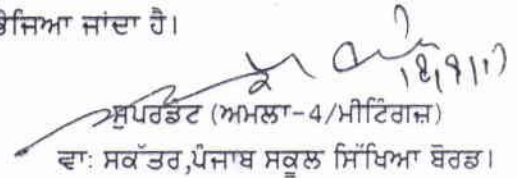 ਭੇਜਿਆ ਜਾਂਦਾ ਹੈ।
ਸੁਪਰਡੰਟ (ਅਮਲਾ-4/ਮੀਟਿੰਗਜ਼)
ਵਾ: ਸਕੱਤਰ,ਪੰਜਾਬ ਸਕੂਲ ਸਿੱਖਿਆ ਬੋਰਡ।